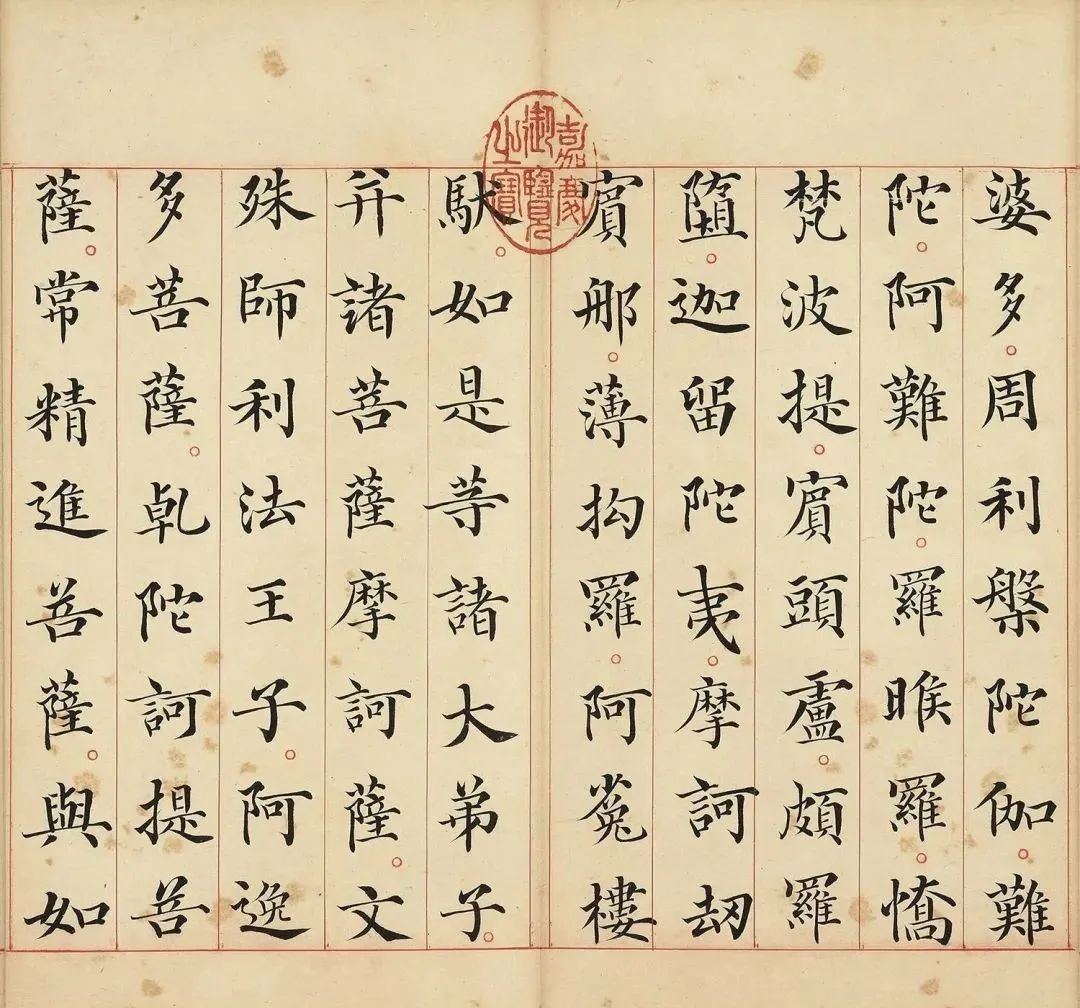 婆多。周利槃陀伽。難
陀。阿難陀。羅睺羅。憍
梵波提。賓頭盧。頗羅
墮。迦留陀夷。摩訶劫
賓那。薄拘羅。阿㝹樓
馱。如是等諸大弟子。
并諸菩薩摩訶薩。文
殊師利法王子。阿逸
多菩薩。乾陀訶提菩
薩。常精進菩薩。與如
嘉慶御覽之寶